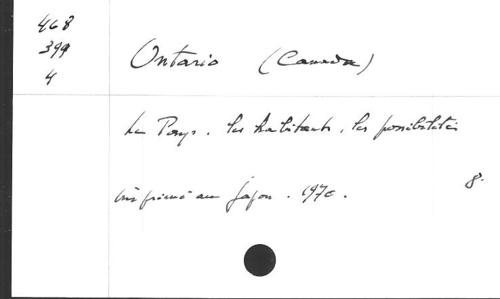 468
399
4
Ontario (Canada)
Le Pays. les habitants, les possibilités
imprimé au Japon. 1970.
8.